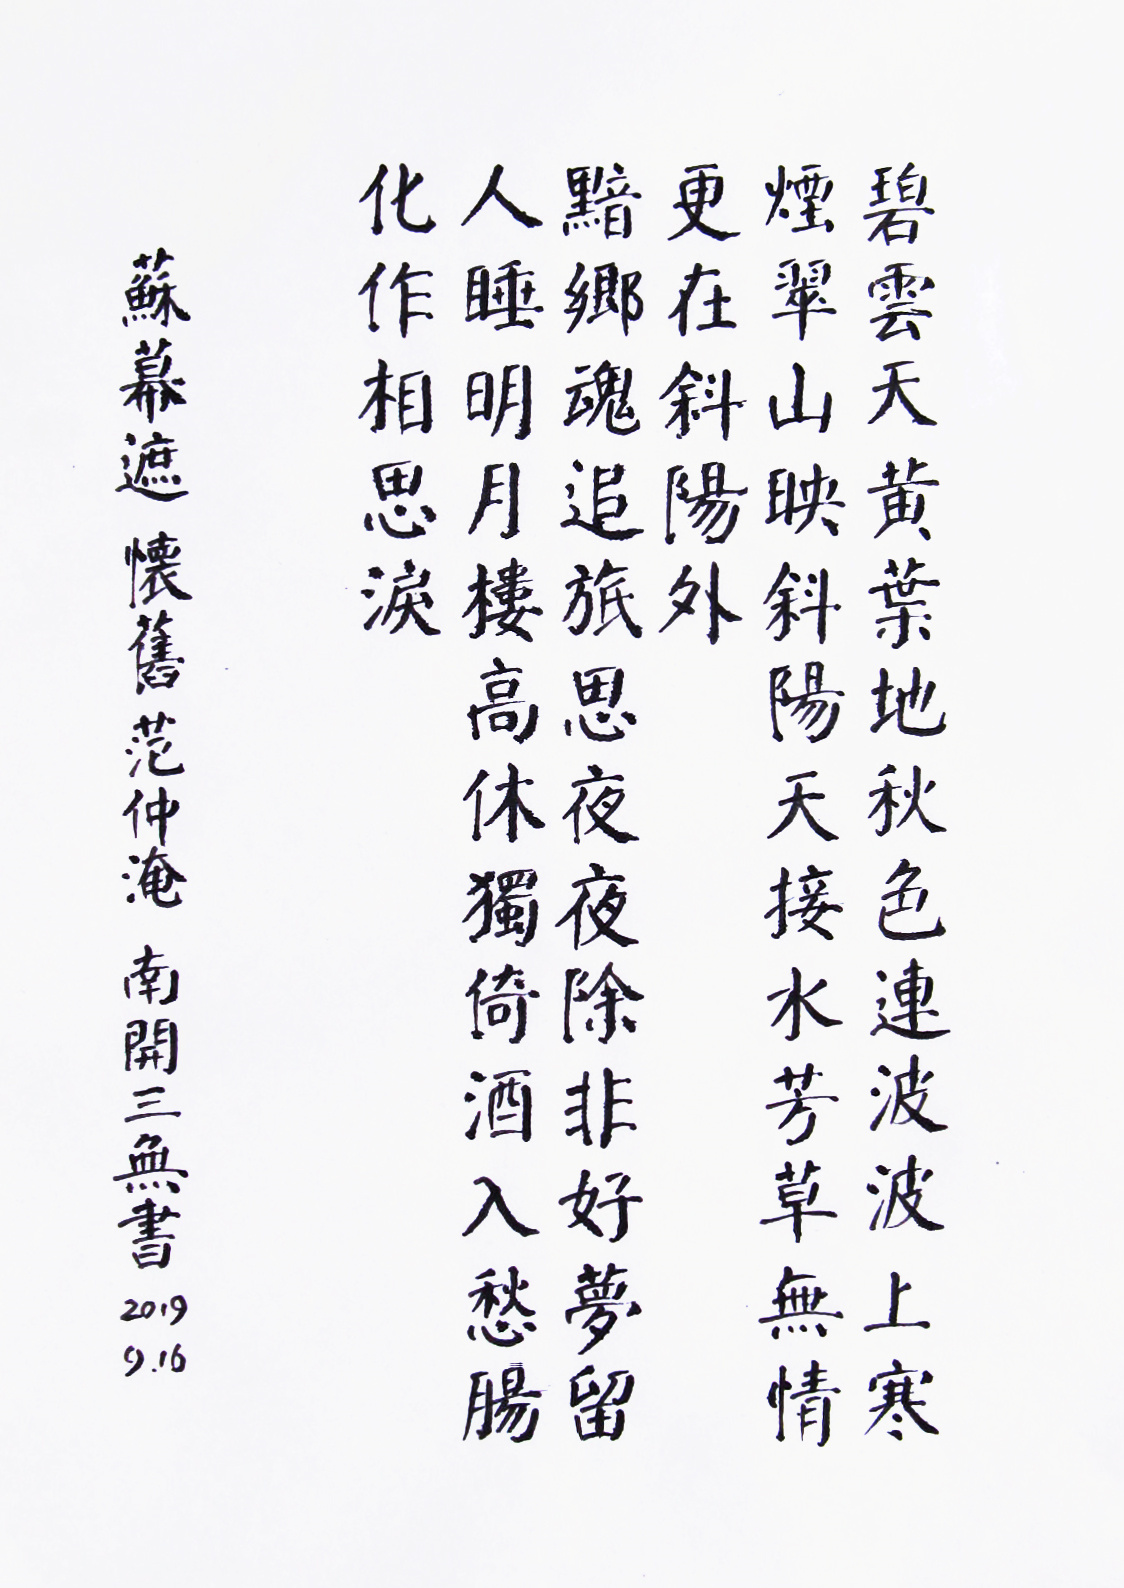 碧雲天黃葉地秋色連波波上寒
煙翠山映斜陽天接水芳草無情
更在斜陽外
黯鄉魂追旅思夜夜除非好夢留
人睡明月樓高休獨倚酒入愁腸
化作相思淚
蘇幕遮 懷舊 范仲淹 南開三無書 2019 9.16